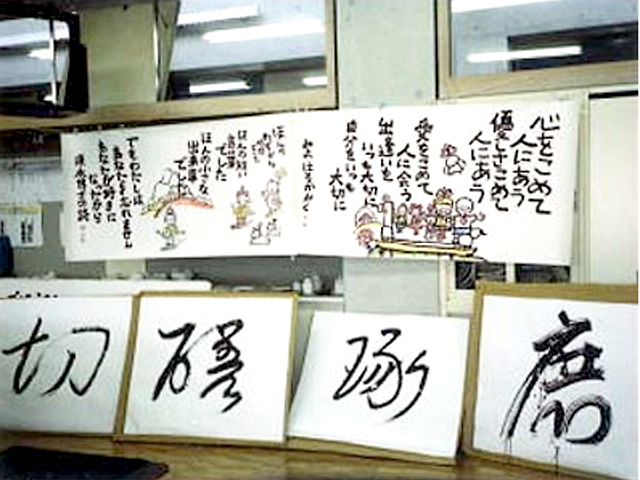 心をこめて
人にあう
優しさこめて
人にあう
愛をこめて
人に会う
出逢いを
いつも大切に
自分をいつも
大切に
ほんの短い
言葉
でした
ほんの小さな
出来事
でした
でもわたしは
あなたを忘れません
あなたが好きに
なったから
切
磋
琢
磨